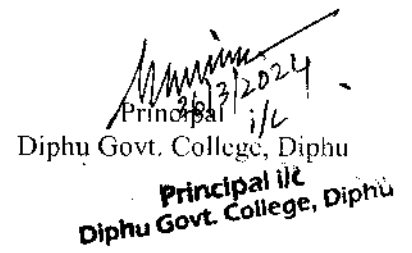 3/2024
Principal i/c
Diphu Govt. College, Diphu
Principal i/c
Diphu Govt. College, Diphu